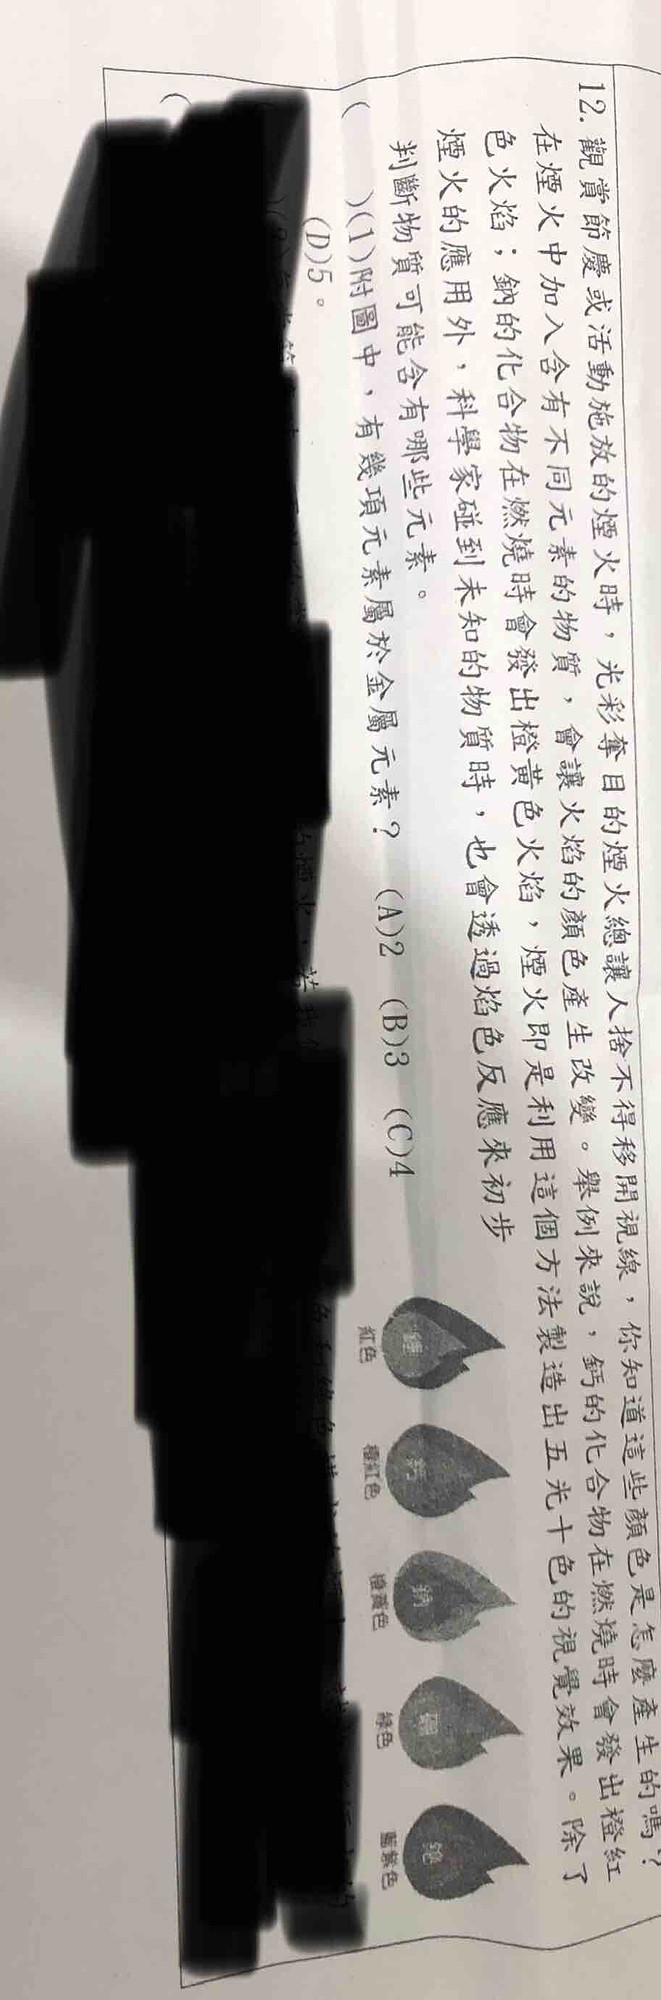 12. 觀賞節慶或活動施放的煙火時，光彩奪目的煙火總讓人捨不得移開視線，你知道這些顏色是怎麼產生的嗎？
在煙火中加入含有不同元素的物質，會讓火焰的顏色產生改變。舉例來說，鈣的化合物在燃燒時會發出橙紅
色火焰；鈉的化合物在燃燒時會發出橙黃色火焰，煙火即是利用這個方法製造出五光十色的視覺效果。除了
煙火的應用外，科學家碰到未知的物質時，也會透過焰色反應來初步
判斷物質可能含有哪些元素。
(　)(1)附圖中，有幾項元素屬於金屬元素？ (A)2 (B)3 (C)4
(D)5。
鈣 鈉
紅色 橙紅色 橙黃色 綠色 藍紫色